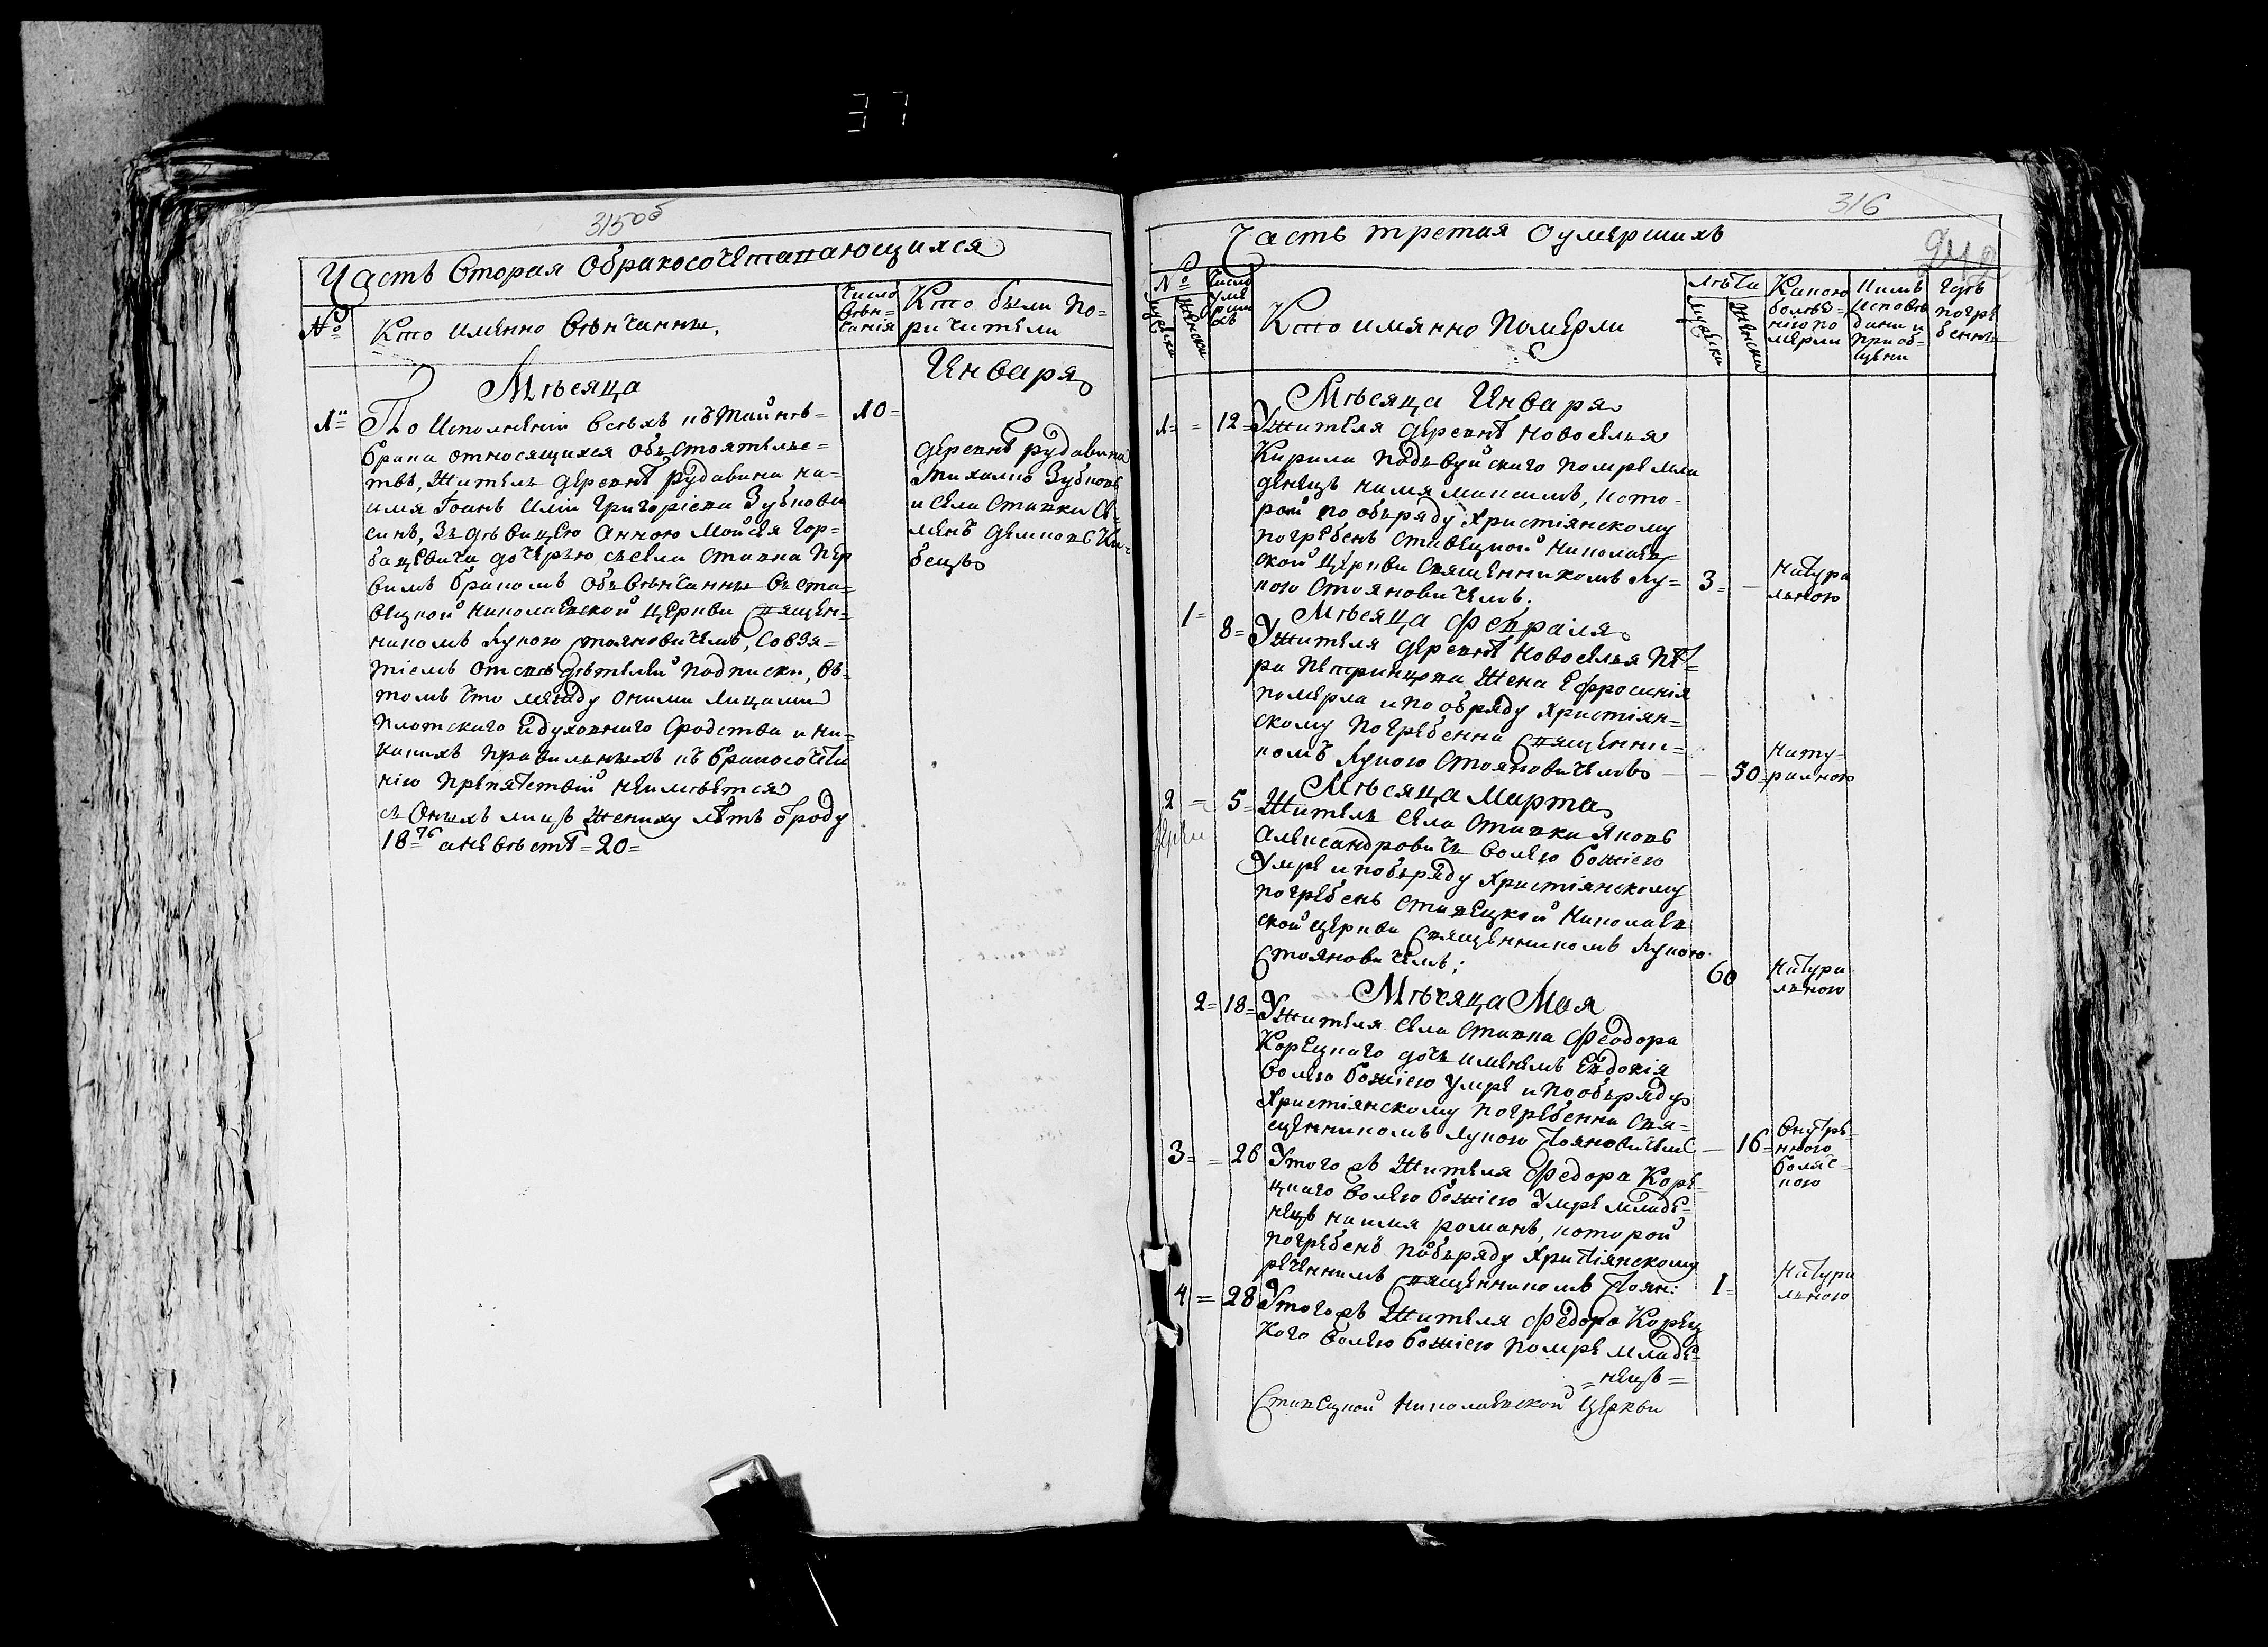 37
315об
Часть Вторая Обракосочетавающихся
№
Кто имянно Вѣнчанны,
Число Вѣн=
чанія
Кто были по=
ручители
Мѣсяца
Генваря
1=
По Исполненіи всѣхъ къ тайнѣ=
10=
брака относящихся обьстоятелс=
твъ, Житель деревнѣ рудавина на=
имя Іоанъ Илія Григоріева Зубкова
синъ, Зъ дѣвицею Анною Мойсея Гор=
бацевича дочерью съ села Ставка пер
вимъ бракомъ обьвѣнчанны въ Ста=
вецкой Николаевской церкви Священ=
никомъ Лукою Стояновичемъ, Совзя=
тіемъ отсвѣдѣтелей подписки, въ=
томъ что между оними лицами
плотскаго и духовнаго Сродства и ни=
какихъ правильныхъ къ бракосочета
нію препятствій неимѣется
съ Оныхъ лицъ Жениху лѣтъ ѿроду
18= а невѣстѣ =20=
деревнѣ рудавина
михайло Зубковъ
и села Ставки Се=
менъ
бецъ
316
242
Часть третая Оумершихъ
№
мужеска
женска
Число
уме
рши
хъ
Кто имянно померли
Лѣта
мужеска
женска
Какою
болѣз=
нію по
мерли
Кимъ
исповѣ
дани и
приоб=
щени
Гдѣ
погре
бенны
Мѣсяца Генваря
1= = 12=
Ужителя деревнѣ Новоселья
Кирила подвуйского помре мла
денецъ наимя максимъ, кото=
рой по обьряду Христіянскому
погребенъ Ставецкой Николаев=
ской церкви Священникомъ Лу=
3= — Натура
кою Стояновичемъ.
льною
Мѣсяца Февраля
1= 8=
Ужителя деревнѣ Новоселья пет=
ра Жена Ефросинія
померла и по обряду Христіян=
скому погребенна Священни=
комъ Лукою Стояновичемъ
— 50= Нату
ралною
Мѣсяца Марта
2 = 5=
Житель села Ставки Яковъ
Александровичъ волею божіею
Умре и пообьряду Христіянскому
погребенъ Ставецкой Николаев
ской церкви Священникомъ Лукою
Стояновичемъ;
60 Натура
льною
Мѣсяца Мая
2= 18=
Ужителя села Ставка Феодора
Корецкаго дочь именемъ Евдокія
волею божіею умре и пообьряду
Христіянскому погребенна Свя=
щенникомъ Лукою Стояновичемъ
— 16= Внутре
ннюю
болѣс=
ною
3= = 26
Утогожъ Жителя Федора Коре
цкаго волею божіею Умре младе=
нецъ наимя романъ, которой
погребенъ пообьряду Христіянскому
реченнимъ Священникомъ Стоян:
1= Натура
льною
4 = 28
Утогожъ Жителя Федора Корец
кого волею божіею помре младе=
=нецъ=
Ставецкой Николаевской Церкви